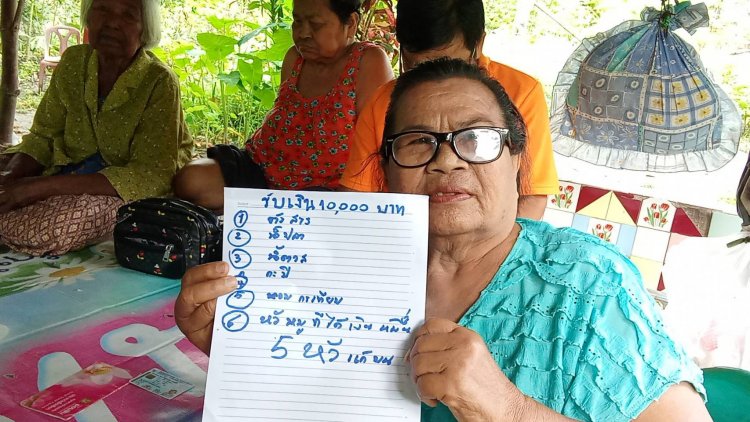 รับเงิน 10,000 บาท
① ข้าวสาร
② น้ำปลา
③ น้ำตาล
④ กะปิ
⑤ หอม กะเทียม
⑥ หัวหมู ที่ได้ เงิน หมื่น
5 หัว